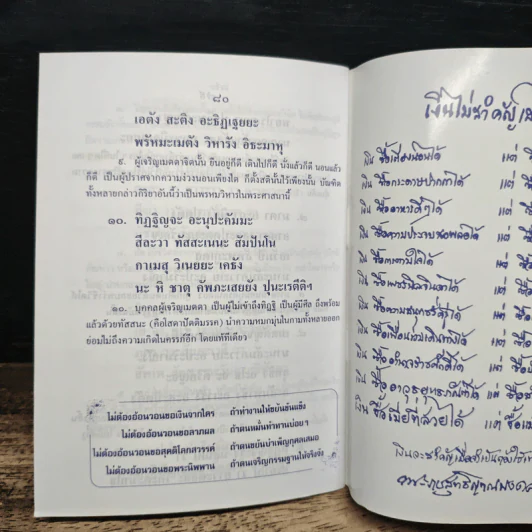 ๘๐
เอตัง สะติง อะธิฏเฐยยะ
พรัหมะเมตัง วิหารัง อิธะมาหุ
๙. ผู้เจริญเมตตาจิตนั้น ยืนอยู่ก็ดี เดินไปก็ดี นั่งแล้วก็ดี นอนแล้ว
ก็ดี เป็นผู้ปราศจากความง่วงนอนเพียงใด ก็ตั้งสตินั้นไว้เพียงนั้น บัณฑิต
ทั้งหลายกล่าวกิริยาอันนี้ว่าเป็นพรหมวิหารในพระศาสนานี้
๑๐. ทิฏฐิญจะ อะนุปะคัมมะ
สีละวา ทัสสะเนนะ สัมปันโน
กาเมสุ วิเนยยะ เคธัง
นะ หิ ชาตุ คัพภะเสยยัง ปุนะเรตีติฯ
๑๐. บุคคลผู้เจริญเมตตา เป็นผู้ไม่เข้าถึงทิฏฐิ เป็นผู้มีศีล ถึงพร้อม
แล้วด้วยทัสสนะ (คือโสดาปัตติมรรค) นำความหมกมุ่นในกามทั้งหลายออก
ย่อมไม่ถึงความเกิดในครรภ์อีก โดยแท้ทีเดียว
ไม่ต้องอ้อนวอนขอเงินจากใคร ถ้าทำงานให้ขยันขันแข็ง
ไม่ต้องอ้อนวอนขอลาภผล ถ้าตนหมั่นทำทานบ่อยๆ
ไม่ต้องอ้อนวอนขอสุคติโลกสวรรค์ ถ้าตนขยันบำเพ็ญกุศลเสมอ
ไม่ต้องอ้อนวอนขอพระนิพพาน ถ้าตนเจริญกรรมฐานให้จริงจัง
เงินไม่สำคัญ
เงิน ซื้อเพื่อนได้ แต่
เงิน ซื้อกระดาษปากกาได้ แต่
เงิน ซื้ออาหารดีๆได้ แต่
เงิน ซื้อความประจบสอพลอได้ แต่
เงิน ได้ แต่
เงิน ได้ แต่
เงิน ได้ แต่
เงิน ซื้อเพื่อนร่วมเดินทางได้ แต่
เงิน ซื้ออำนาจราชศักดิ์ได้ แต่
เงิน ซื้ออาวุธยุทธภัณฑ์ได้ แต่
เงิน ซื้อเมียที่สวยได้ แต่